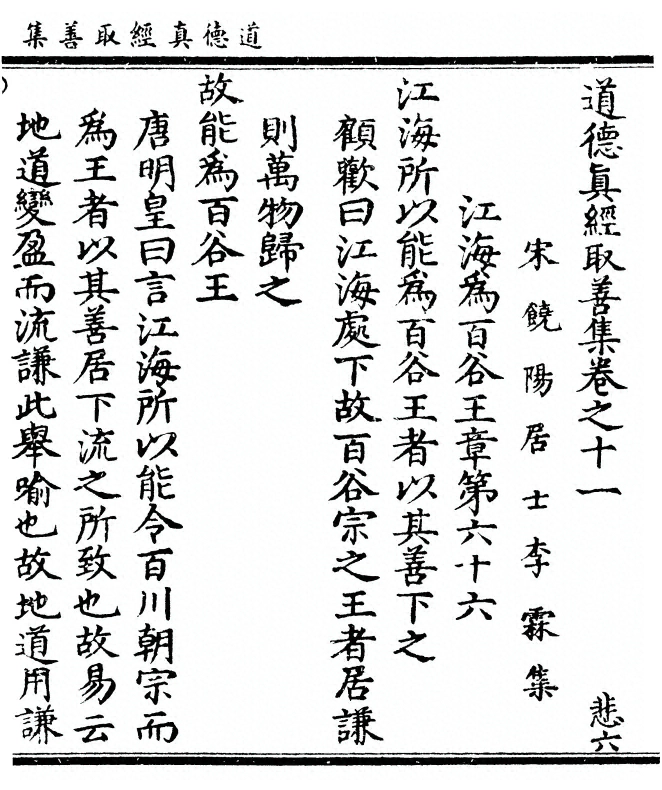 道德真經取善集
道德眞經取善集卷之十一
悲六
宋饒陽居士李霖集
江海爲百谷王章第六十六
江海所以能爲百谷王者以其善下之
顧歡曰江海處下故百谷宗之王者居謙
則萬物歸之
故能爲百谷王
唐明皇曰言江海所以能令百川朝宗而
爲王者以其善居下流之所致也故易云
地道變盈而流謙此舉喻也故地道用謙